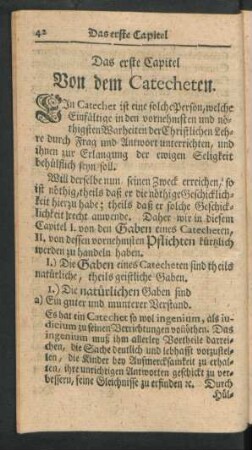 42 Das erste Capitel
Das erste Capitel
Von dem Catecheten.
EIn Catechet ist eine solche Person, welche
Einfältige in den vornehmsten und nö-
thigsten Warheiten der Christlichen Leh-
re durch Frag und Antwort unterrichten, und
ihnen zur Erlangung der ewigen Seligkeit
behülflich seyn soll.
Will derselbe nun seinen Zweck erreichen, so
ist nöthig, theils daß er die nöthige Geschicklich-
keit hierzu habe; theils daß er solche Geschick-
lichkeit recht anwende. Daher wir in diesem
Capitel I. von den Gaben eines Catecheten,
II. von dessen vornehmsten Pflichten kürtzlich
werden zu handeln haben.
I.) Die Gaben eines Catecheten sind theils
natürliche, theils geistliche Gaben.
1.) Die natürlichen Gaben sind
a) Ein guter und munterer Verstand.
Es hat ein Catechet so wol ingenium, als iu-
dicium zu seinen Verrichtungen vonnöthen. Das
ingenium muß ihm allerley Vortheile darrei-
chen, die Sache deutlich und lebhafft vorzustel-
len, die Kinder bey Aufmercksamkeit zu erhal-
ten, ihre unrichtigen Antworten geschickt zu ver-
bessern, seine Gleichnisse zu erfinden ꝛc. Durch
Hül-